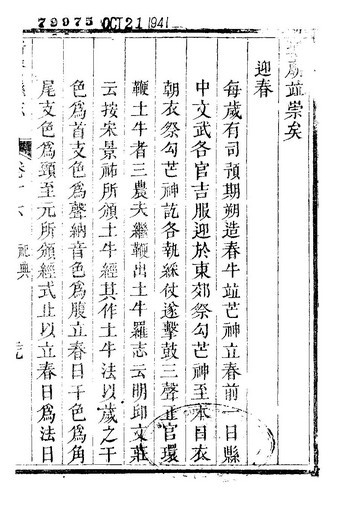 79075 OCT 21 1941
疏崇矣
迎春
每歲有司預期朔造春牛竝芒神立春前一日縣
中文武各官吉服迎於東郊祭勾芒神至本日衣
朝衣祭勾芒神訖各執綵仗遂擊鼓三聲正官環
鞭土牛者三農夫繼鞭出土牛羅志云明邱文莊
云按宋景祐所頒土牛經其作土牛法以歲之干
色爲首支色爲聲納音色爲腹立春日干色爲角
尾支色爲頸至元所頒經式止以立春日爲法日
卷十六 祀典